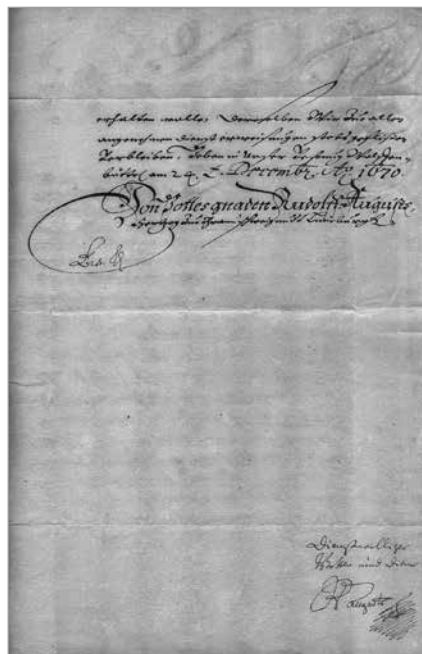 erhalten wolle, Deroselben Wir zue allen
angenehmen dienst erweisungen stets geflissen
verbleiben. Geben in Unser Vestung Wolffen-
büttel am 24. Decembr. Ao. 1670.
Von Gottes gnaden Rudolff Augustus,
Hertzog zue Braunschweig und Lüneburg
Dienstwilliger
Vetter und Diener
R Augusts